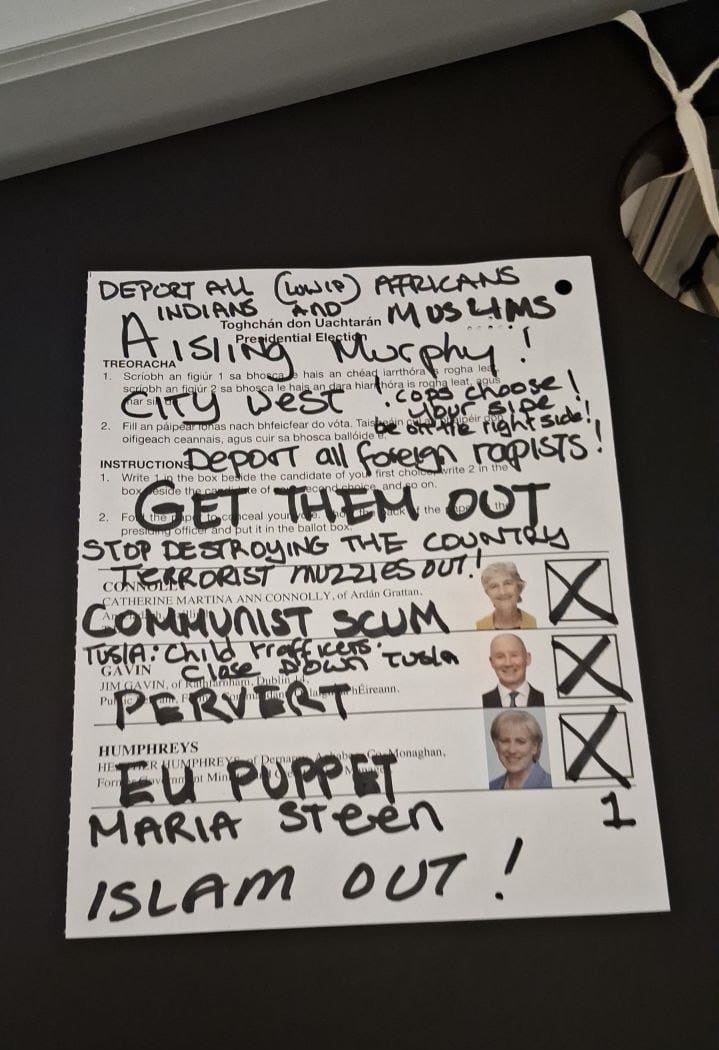 DEPORT ALL (LOW IP) AFRICANS
INDIANS AND MUSLIMS
Toghchán don Uachtarán
Presidential Election
AISLING MURPHY!
TREORACHA
1. Scríobh an figiúr 1 sa bhosca le hais an chéad iarrthóra is rogha leat,
scríobh an figiúr 2 sa bhosca le hais an dara hiarrthóra is rogha leat, agus
mar sin
CITY WEST! COPS CHOOSE!
YOUR SIDE
be on the right side!
2. Fill an páipéar ionas nach bhfeicfear do vóta.
oifigeach ceannais, agus cuir sa bhosca ballóide é.
DEPORT all foreign rapists!
INSTRUCTIONS
1. Write 1 in the box beside the candidate of your first choice, write 2 in the
box beside the candidate of your second choice, and so on.
GET THEM OUT
2. Fold the paper to conceal your vote. the back of the the
presiding officer and put it in the ballot box.
STOP DESTROYING THE COUNTRY
TERRORIST MUZZIES OUT!
CONNOLLY
CATHERINE MARTINA ANN CONNOLLY, of Ardán Grattan,
COMMUNIST SCUM
TUSLA: Child traffickers.
Close DOWN TUSLA
GAVIN
JIM GAVIN, of Rathfarnham, Dublin 14,
hÉireann.
PERVERT
HUMPHREYS
HEATHER HUMPHREYS, of Co. Monaghan,
Former Government
EU PUPPET
MARIA STEEN 1
ISLAM OUT!